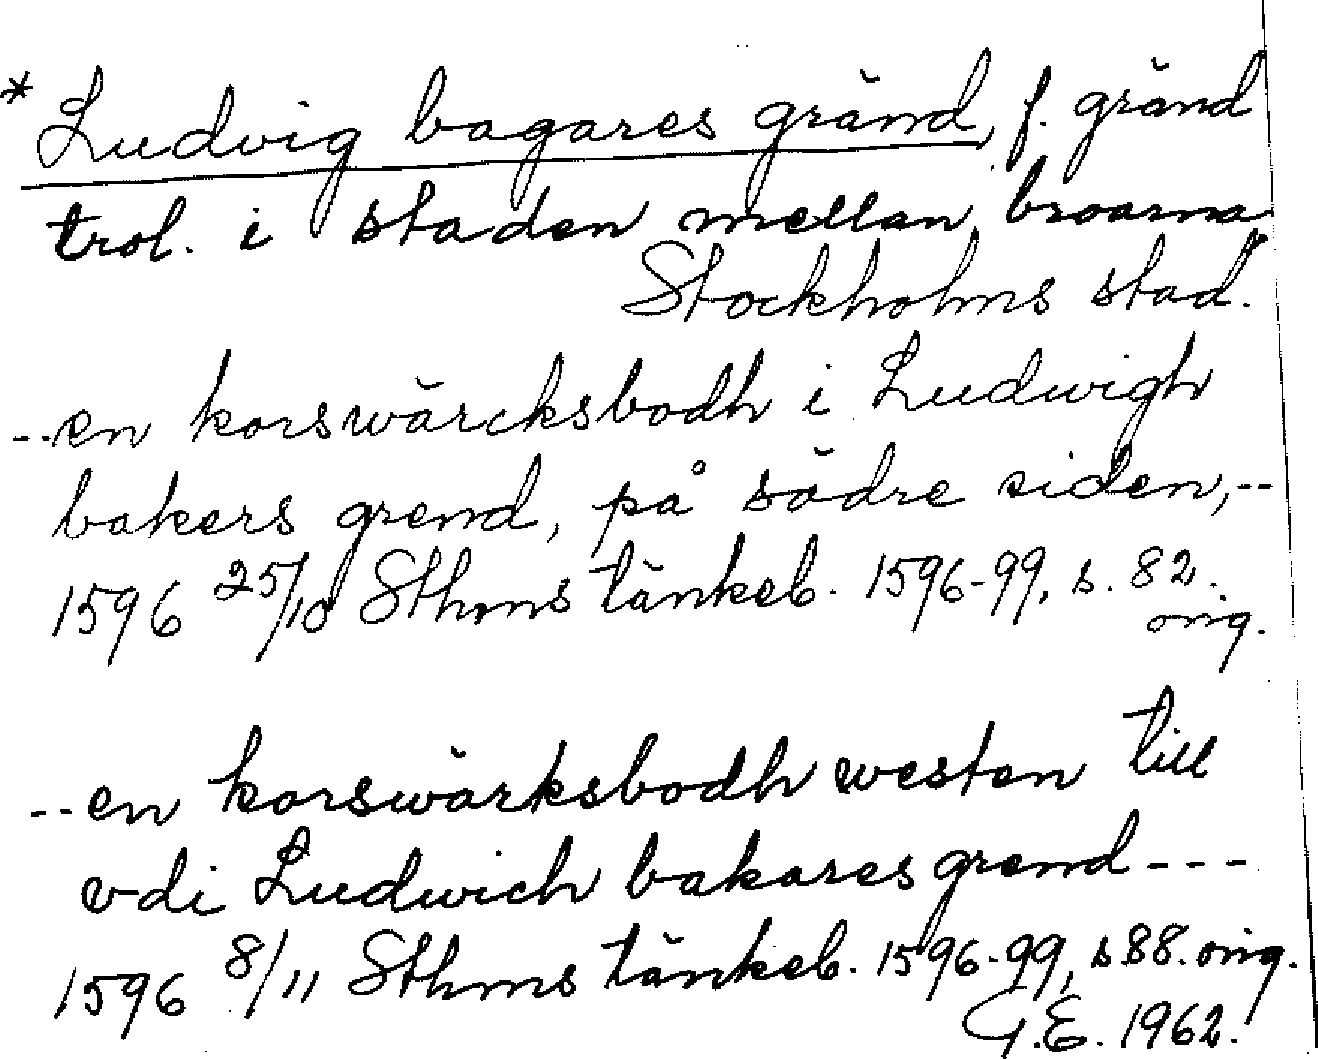 * Ludvig bagares gränd, f. gränd
trol. i staden mellan broarna
Stockholms stad.
--en korswärcksbodh i Ludwigh
bakers grend, på södre siden,--
1596 25/10 Sthms tänkeb. 1596-99, s. 82.
orig.
--en korswärksbodh westen till
vdi Ludwich bakares grend---
1596 8/11 Sthms tänkeb. 1596-99, s 88. orig.
G.E. 1962.